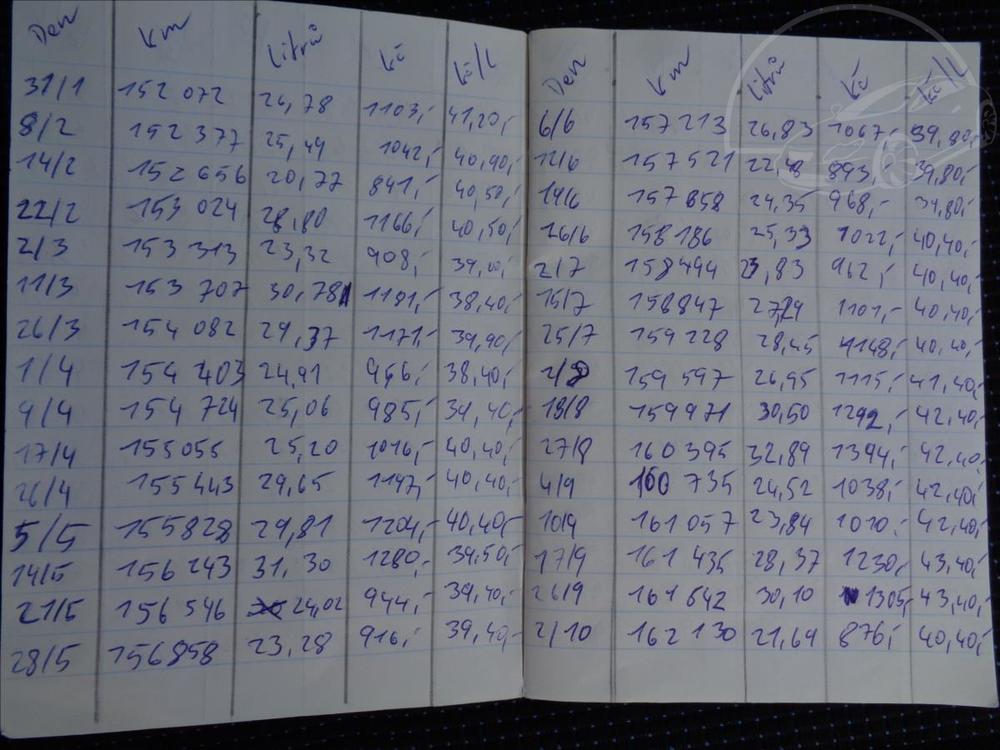 Den Km Litrů Kč Kč/L
31/1 152 072 26,78 1103,- 41,20,-
8/2 152 377 25,49 1042,- 40,90,-
14/2 152 656 20,77 841,- 40,50,-
22/2 153 024 28,80 1166,- 40,50,-
2/3 153 313 23,32 908,-
11/3 153 707 30,78 1181,- 38,40,-
26/3 154 082 29,37 1171,- 39,90,-
1/4 154 403 24,91 956,- 38,40,-
9/4 154 724 25,06 985,- 39,40,-
17/4 155055 25,20 1016,- 40,40,-
26/4 155443 29,65 1197,- 40,40,-
5/5 155828 29,81 1204,- 40,40,-
14/5 156 243 31,30 1280,- 39,50,-
21/5 156 546 24,02 944,- 39,40,-
28/5 156858 23,28 916,- 39,40,-
Den Km Litrů Kč Kč/L
6/6 157 213 26,83 1067,- 39,80,-
12/6 157 521 893,- 39,80,-
19/6 157 858 24,35 968,- 39,80,-
26/6 158 186 25,33 1022,- 40,40,-
2/7 158 494 23,83 962,- 40,40,-
15/7 158847 27,24 1101,- 40,40,-
25/7 159 228 28,45 1148,- 40,40,-
2/8 159 597 26,95 1115,- 41,40,-
18/8 159 971 30,50 1292,- 42,40,-
27/8 160 395 32,89 1394,- 42,40,-
4/9 160 735 24,52 1038,- 42,40,-
10/9 161 057 23,84 1010,- 42,40,-
17/9 161 435 28,37 1230,- 43,40,-
26/9 161 842 30,10 1305,- 43,40,-
2/10 162 130 21,69 876,- 40,40,-